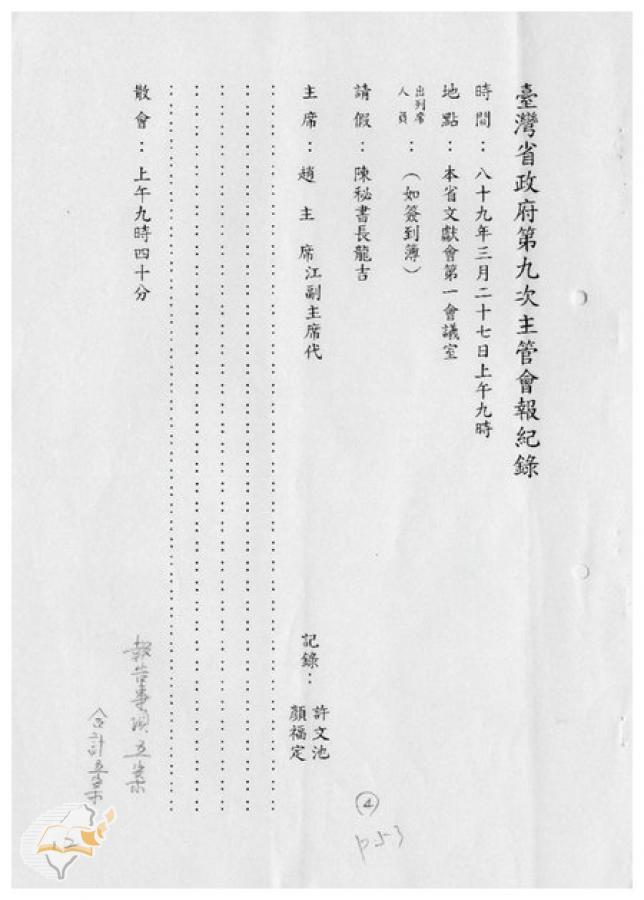 臺灣省政府第九次主管會報紀錄
時間：八十九年三月二十七日上午九時
地點：本省文獻會第一會議室
出列席人員：（如簽到簿）
請假：陳秘書長龍吉
主席：趙主席江副主席代
記錄：許文池
顏福定
散會：上午九時四十分
報告事項五案
合計五案
④
p53
12